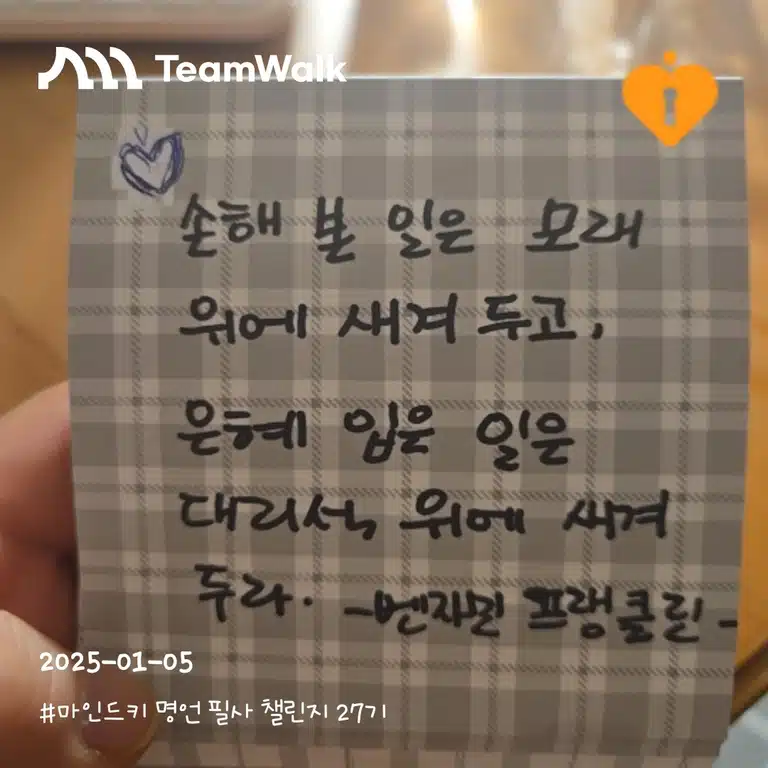 TeamWalk
손해 본 일은 모래
위에 새겨 두고,
은혜 입은 일은
대리석 위에 새겨
두라. -벤자민 프랭클린-
2025-01-05
#마인드키 명언 필사 챌린지 27기